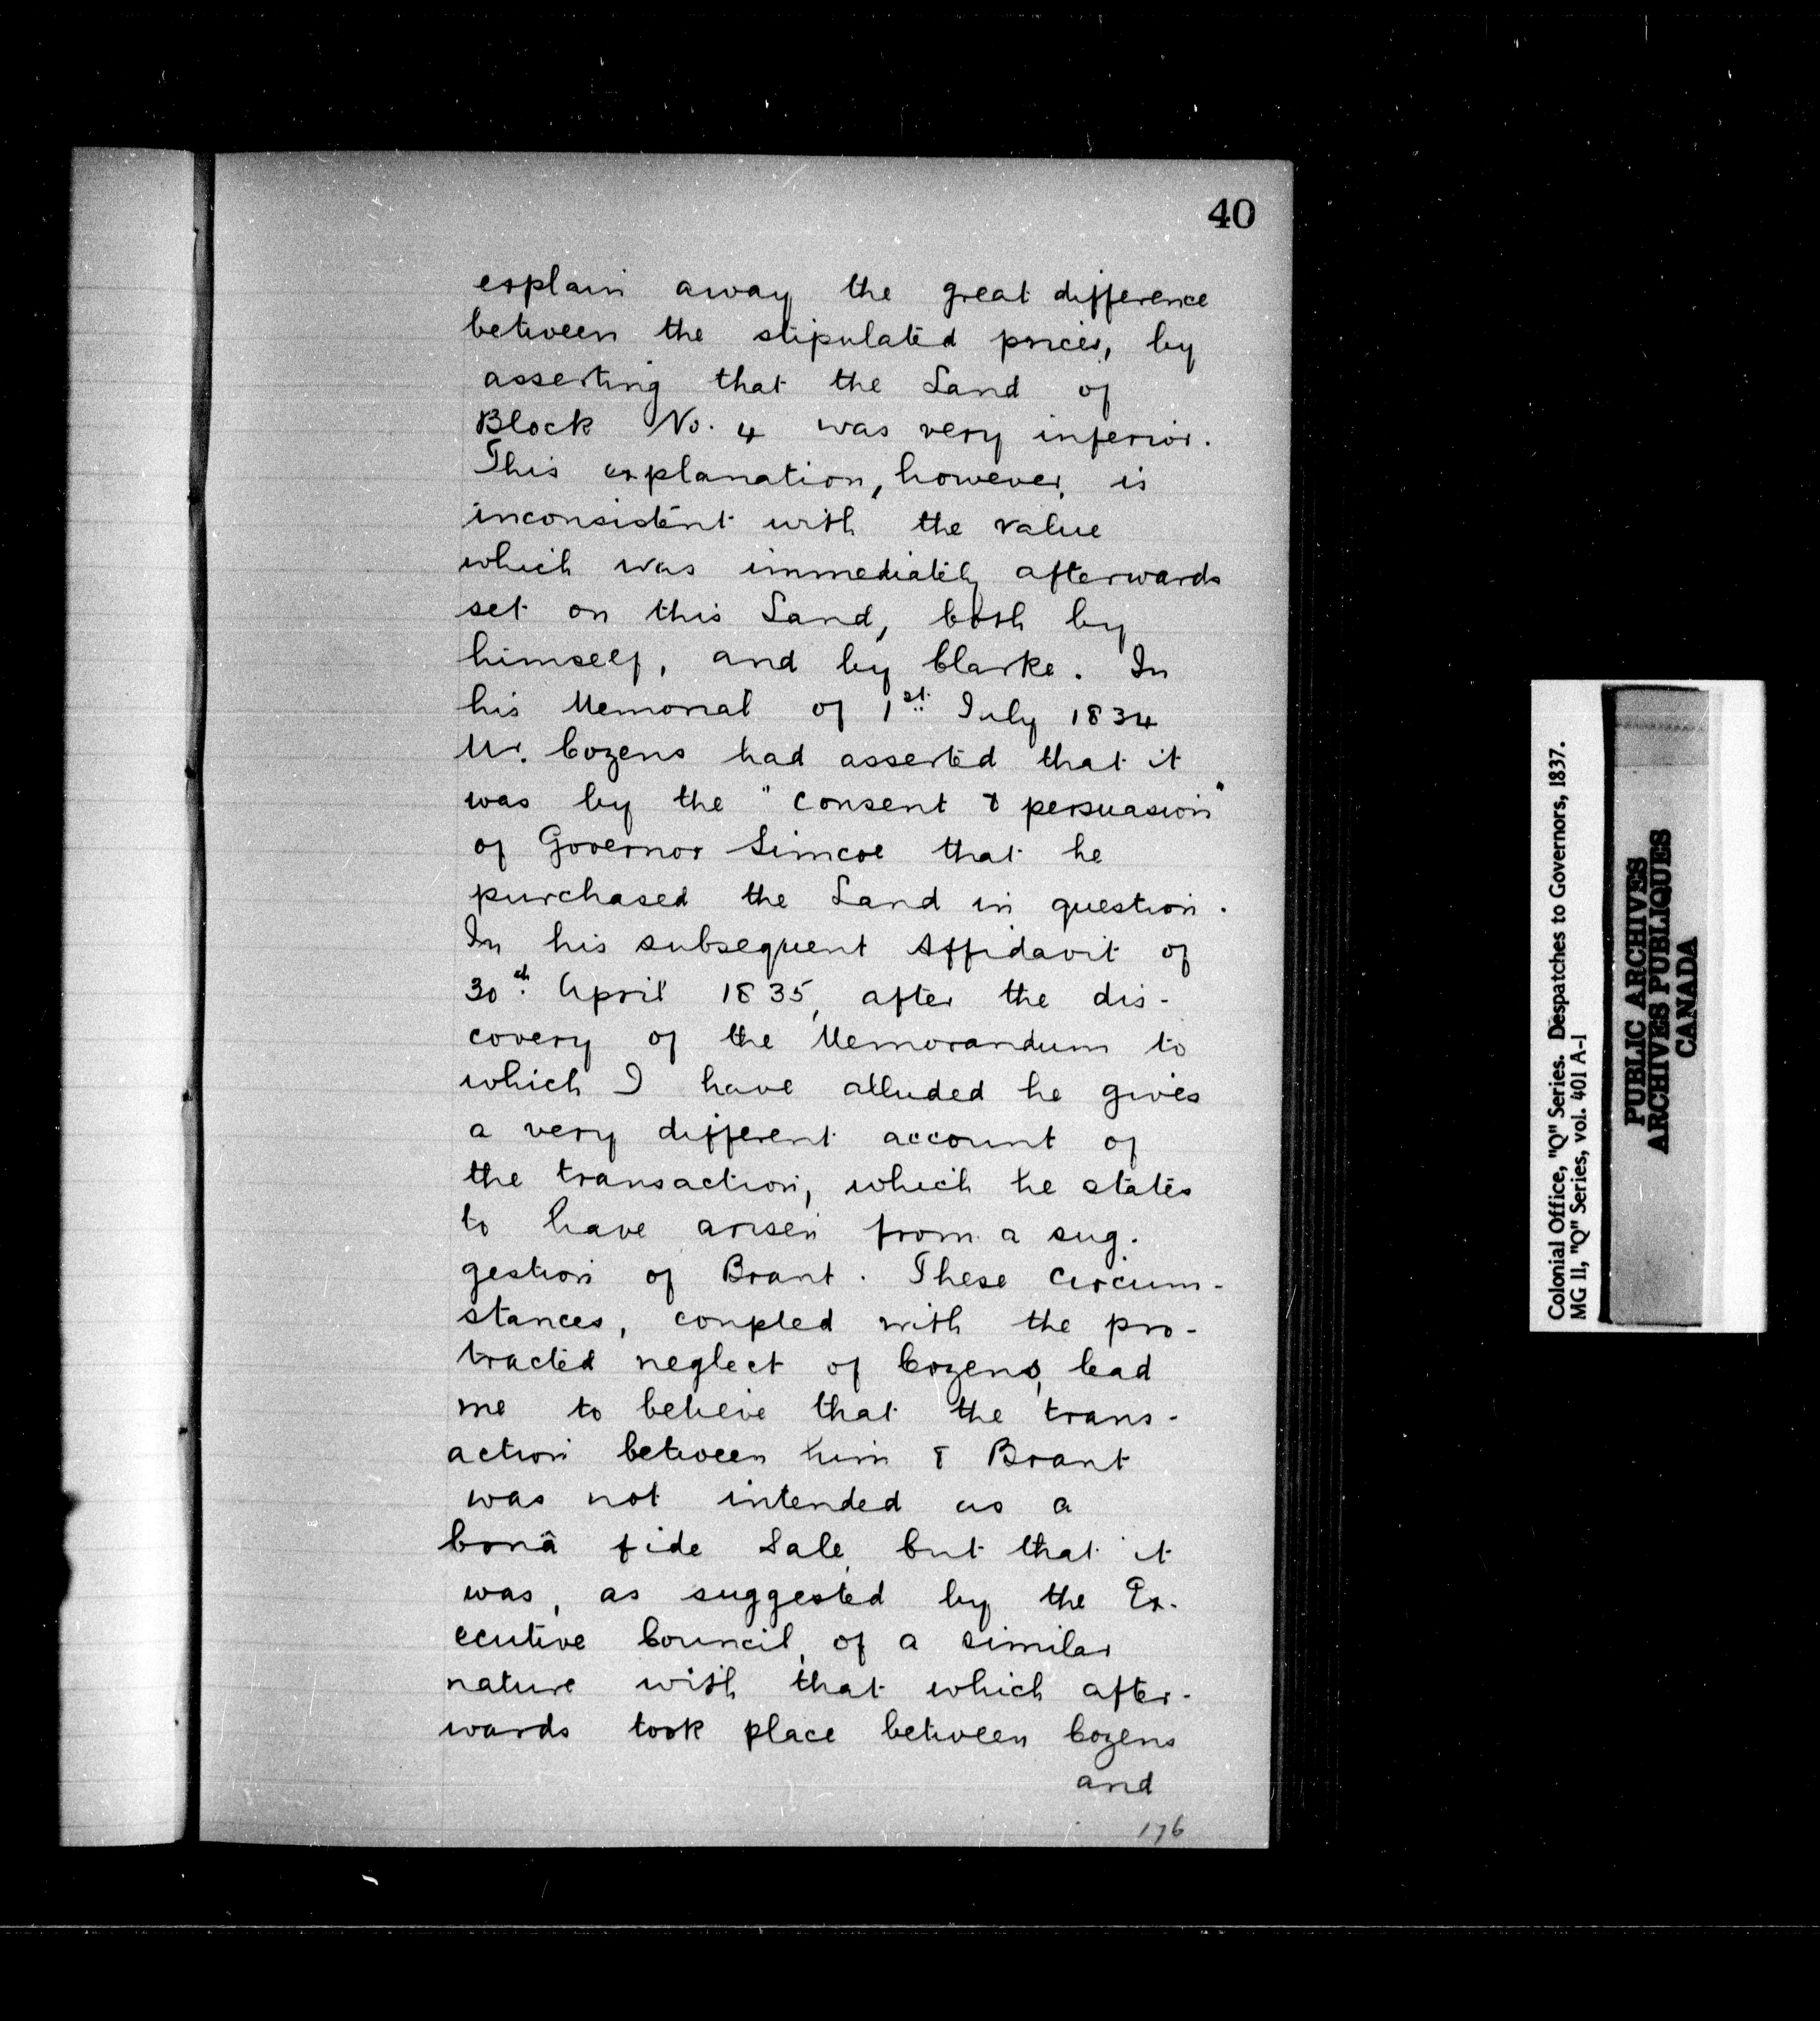 40
explain away the great difference
between the stipulated prices, by
asserting that the Land of
Block No. 4 was very inferior.
This explanation, however, is
inconsistent with the value
which was immediately afterwards
set on this Land, both by
himself, and by Clarke. In
his Memorial of 1st July 1834
Mr. Cozens had asserted that it
was by the "consent & persuasion"
of Governor Simcoe that he
purchased the Land in question.
In his subsequent Affidavit of
30th April 1835, after the dis-
covery of the Memorandum to
which I have alluded he gives
a very different account of
the transaction, which he states
to have arisen from a sug-
gestion of Brant. These circum-
stances, coupled with the pro-
tracted neglect of Cozens, lead
me to believe that the trans-
action between him & Brant
was not intended as a
bonâ fide Sale, but that it
was, as suggested by the Ex-
ecutive Council, of a similar
nature with that which after-
wards took place between Cozens
and
176
Colonial Office, "Q" Series. Despatches to Governors, 1837.
MG 11, "Q" Series, vol. 401 A-1
PUBLIC ARCHIVES
ARCHIVES PUBLIQUES
CANADA